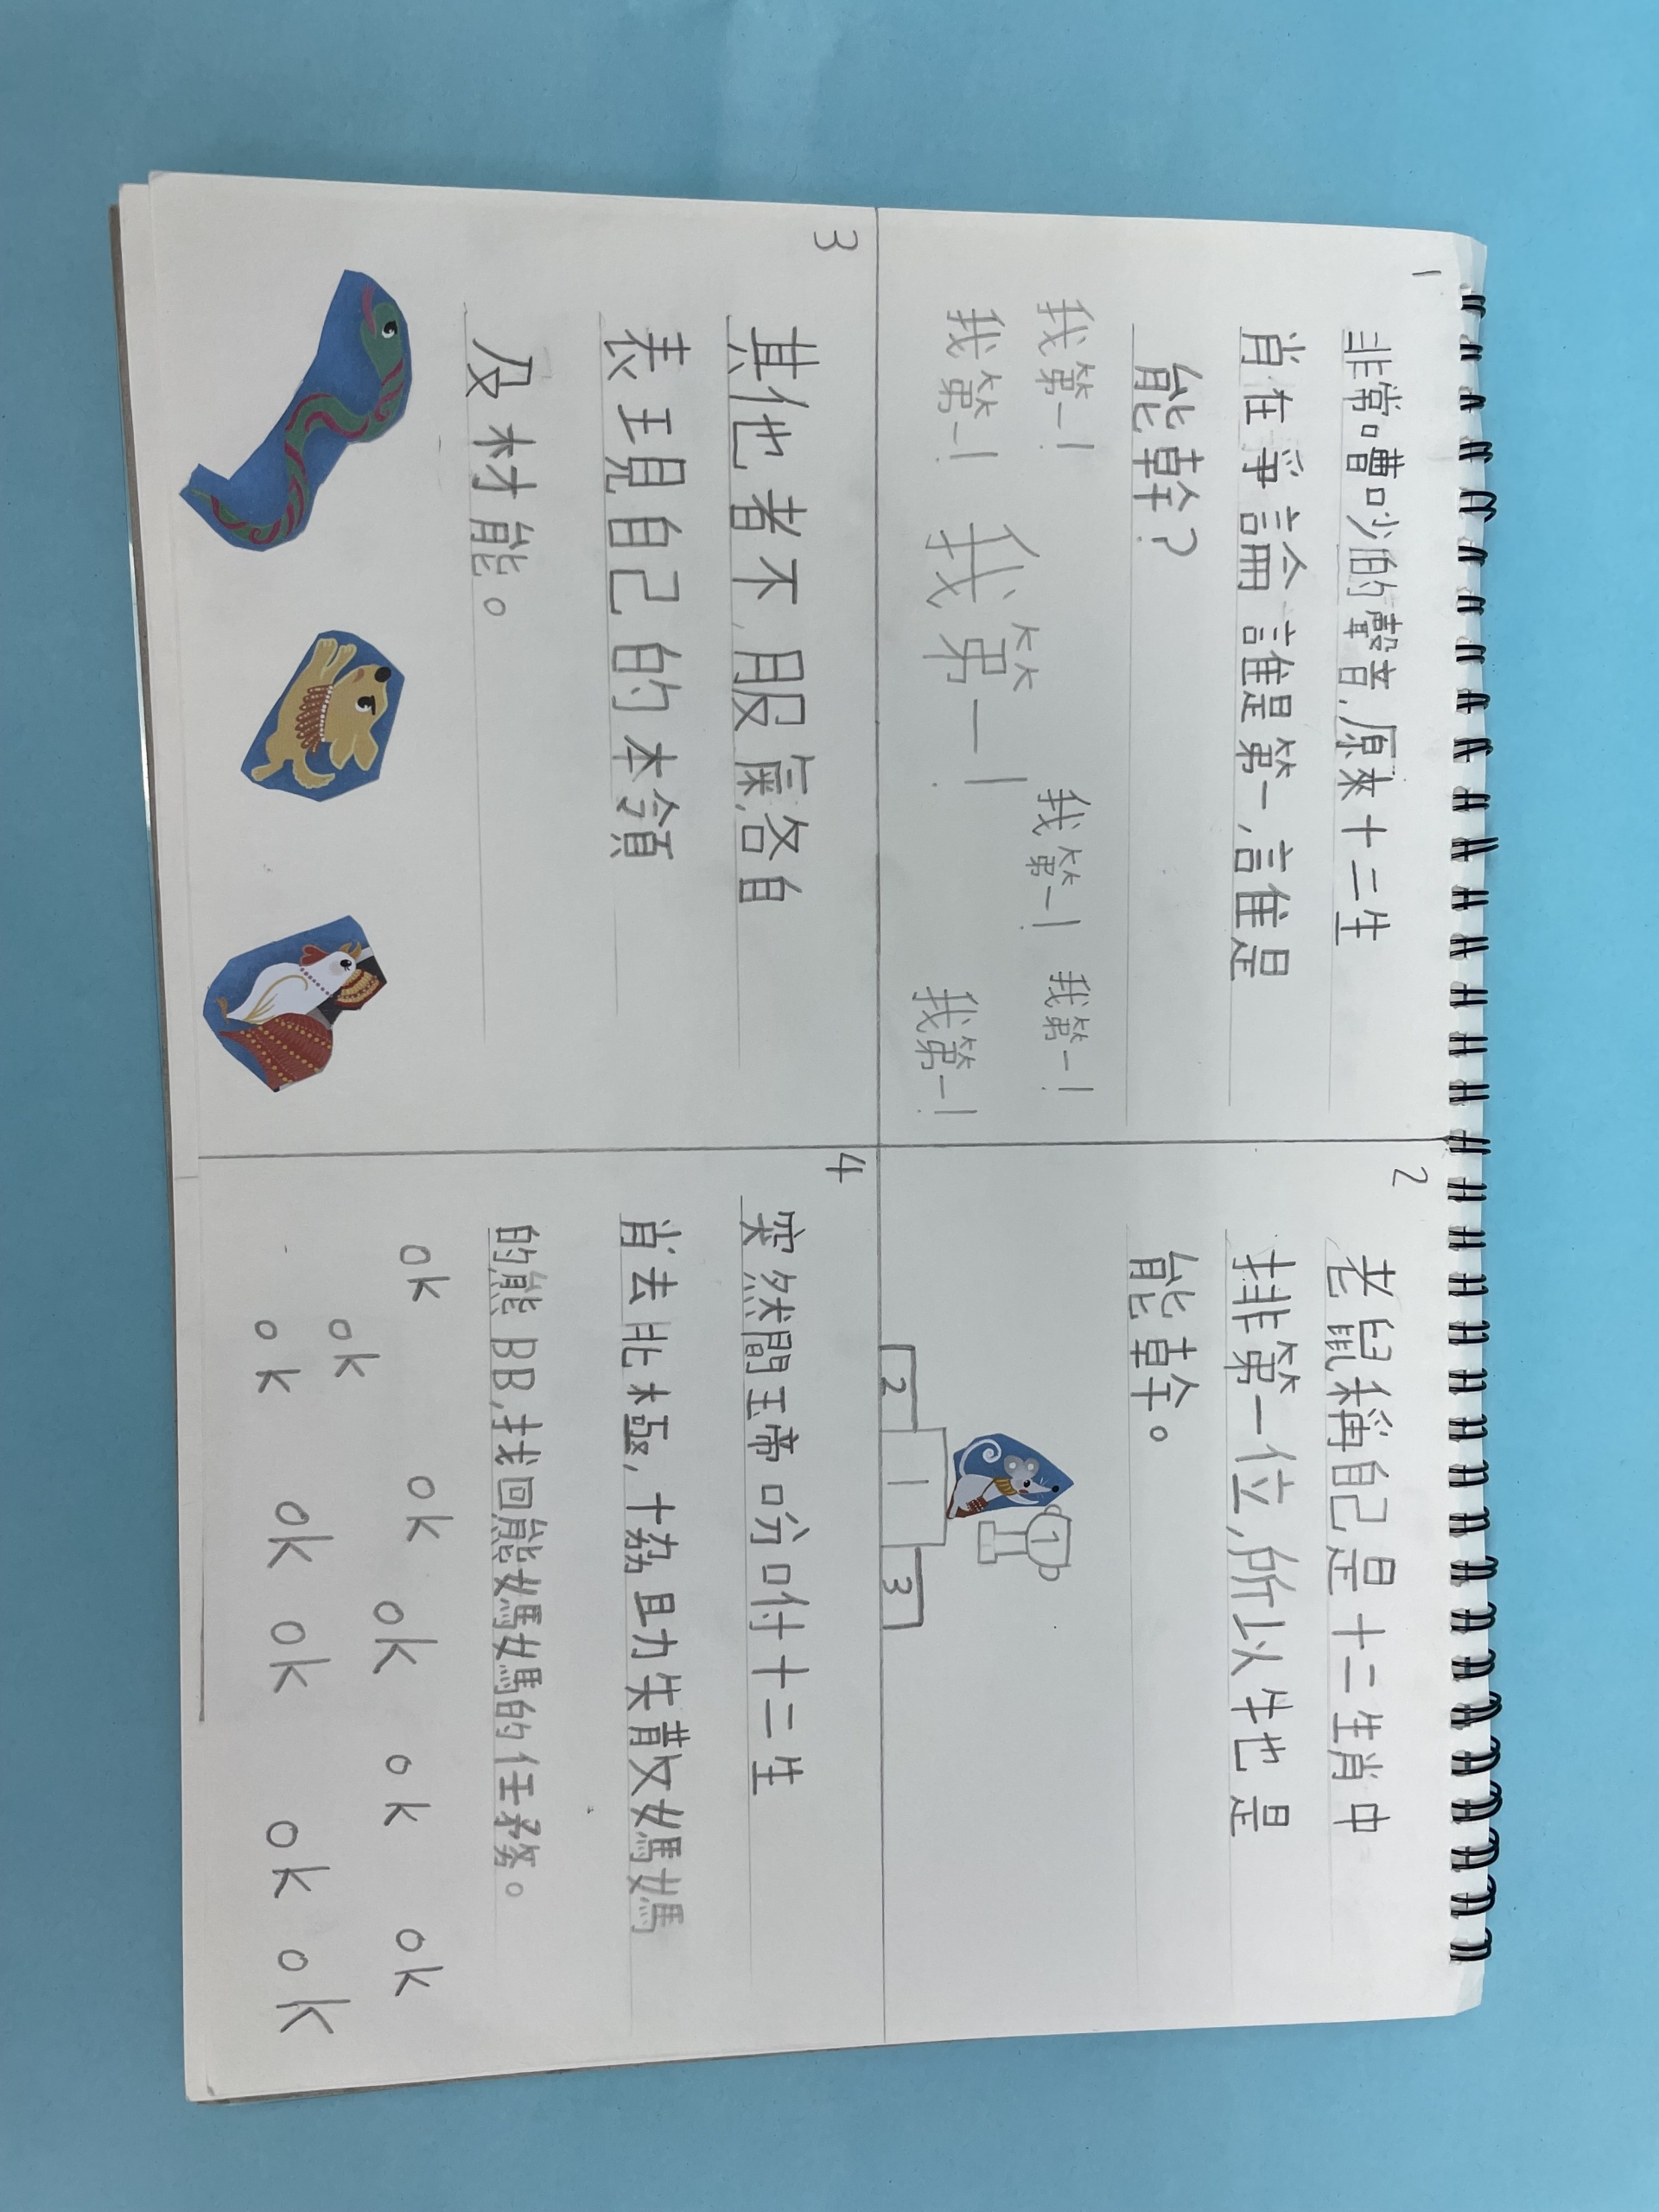 1
非常嘈吵的聲音,原來十二生
肖在爭論誰是第一,誰是
能幹?
我第一!
我第一!
我第一!
我第一!
我第一!
我第一!
2
老鼠稱自己是十二生肖中
排第一位,所以牠也是
能幹。
1
2
1
3
3
其他者不服氣,各自
表現自己的本領
及材能。
4
突然間玉帝吩咐十二生
肖去北極,協助失散媽媽
的熊BB,找回熊媽媽的任務。
ok
ok
ok
ok
ok
ok
ok
ok
ok
ok
ok